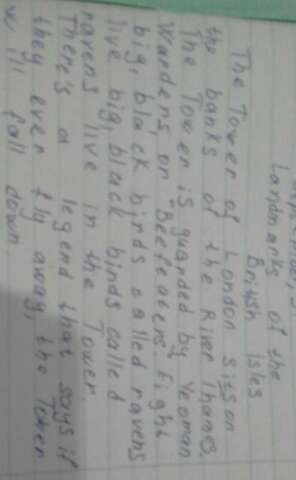 Landmarks of the
British Isles
The Tower of London sits on
the banks of the River Thames,
The Tower is guarded by Yeoman
Warders or Beefeaters. Eight
big, black birds called ravens
live big, black birds called
ravens live in the Tower.
There's a legend that says if
they ever fly away, the Tower
will fall down.